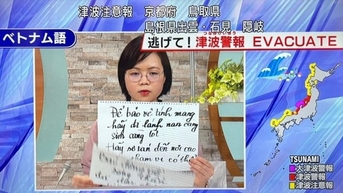 津波注意報　京都府　鳥取県
島根県出雲・石見　隠岐
ベトナム語
逃げて！ 津波警報 EVACUATE
つなみ
Để bảo vệ tính mạng
hãy di lánh nạn cùng
sinh cùng tốt
Hãy sơ tán đến nơi cao
TSUNAMI
大津波警報
津波警報
津波注意報